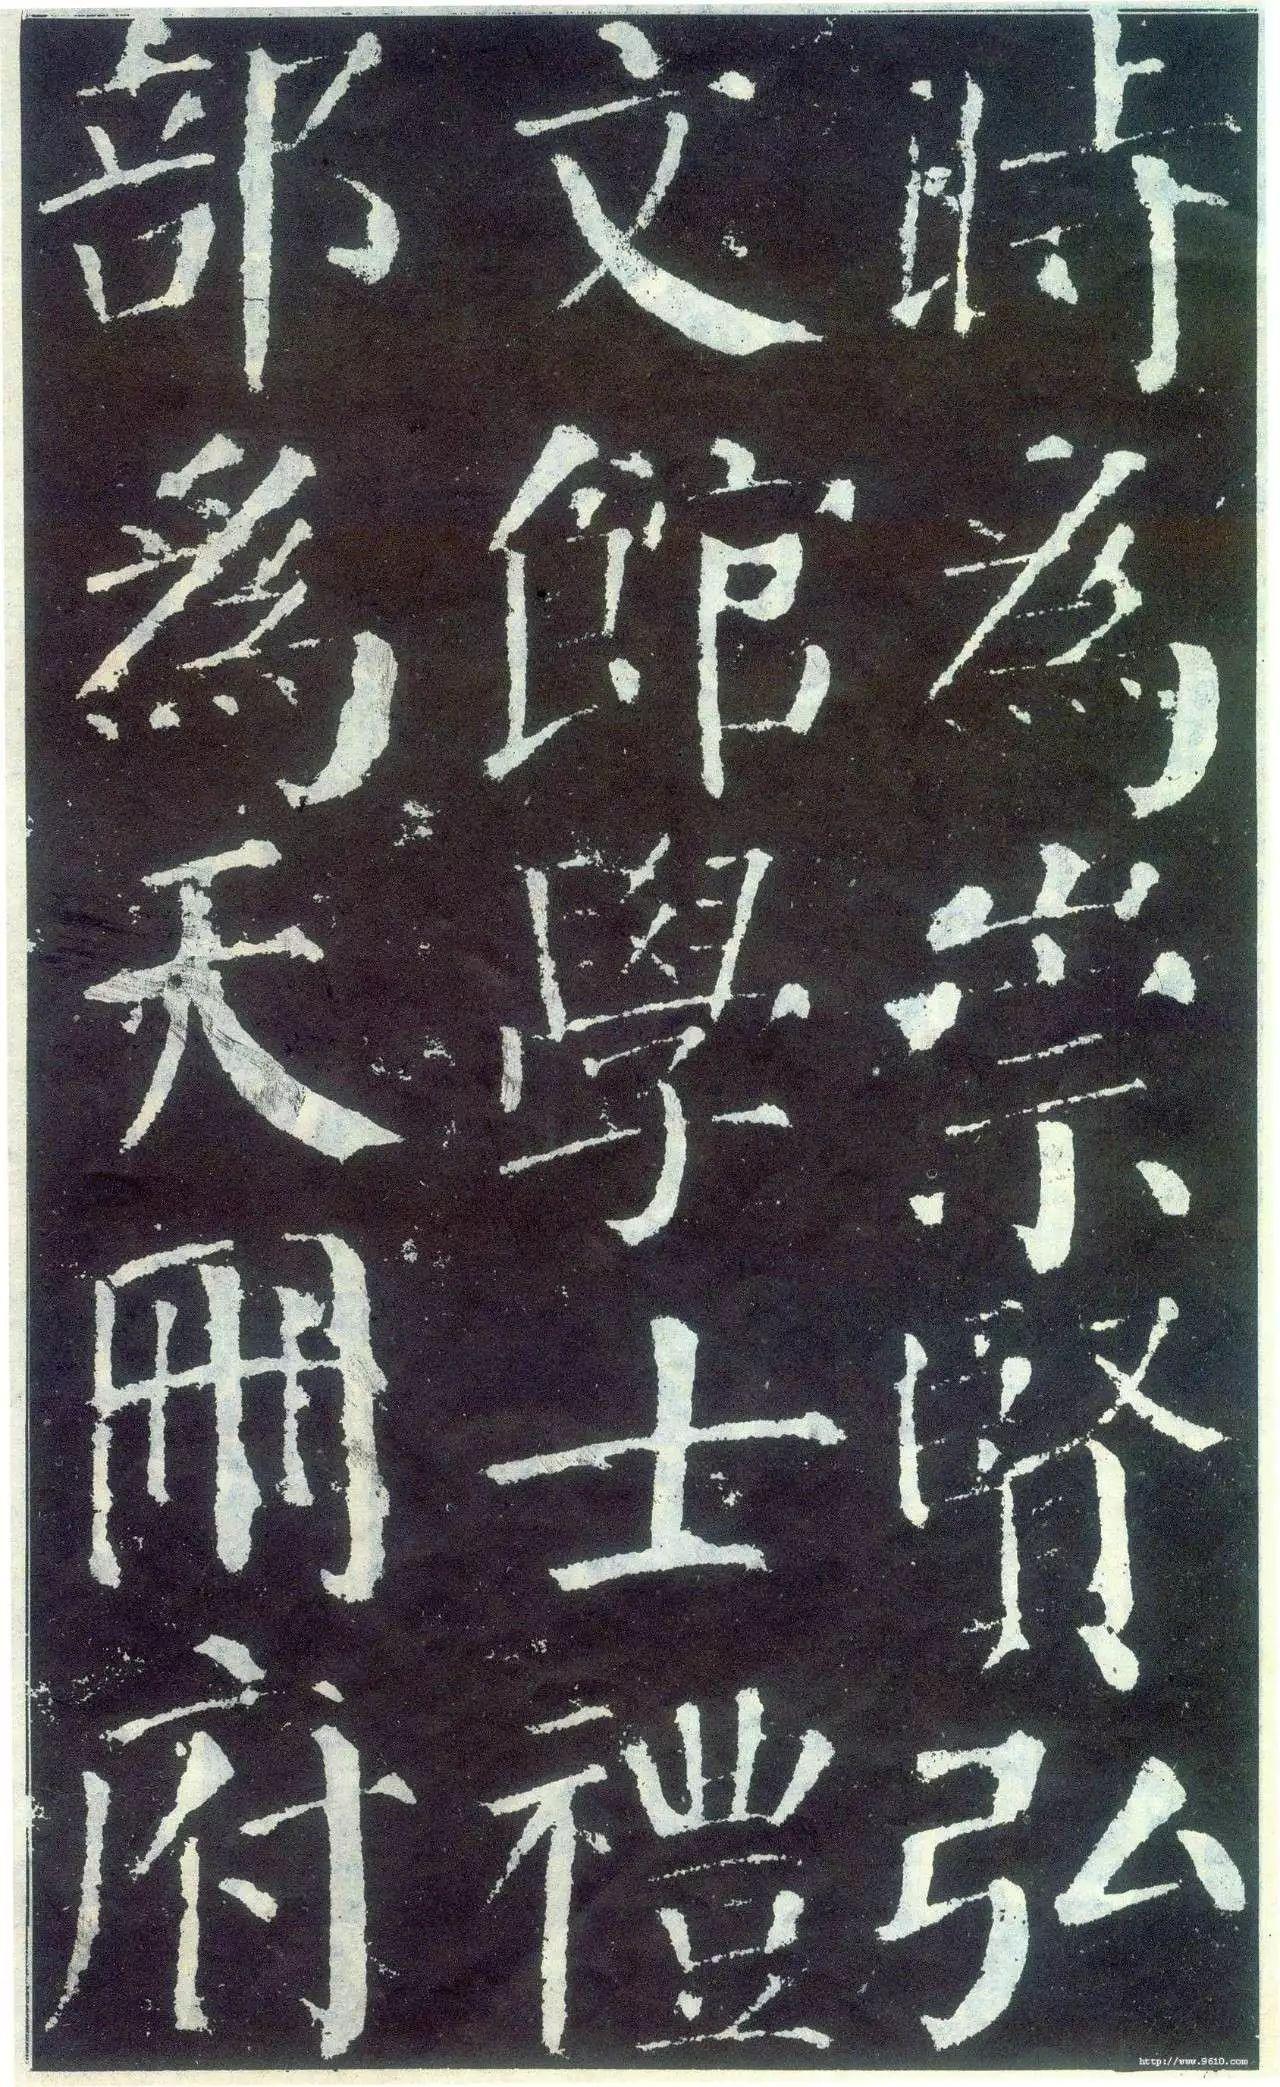 時為崇賢弘
文館學士禮
部為天冊府
http://www.9610.com